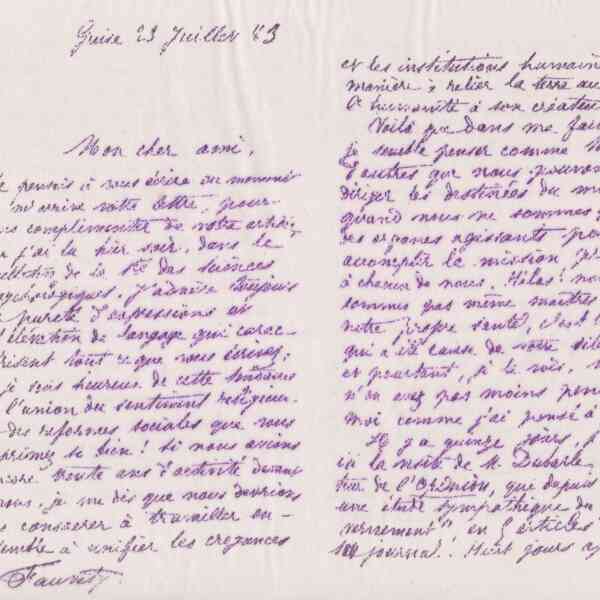 Guise 23 Juillet 83
Mon cher ami,
Je pensais à vous écrire au moment
où m'arrive votre lettre, pour
vous complimenter de votre article
que j'ai lu hier soir, dans le
bulletin de la Sté des sciences
psychologiques. J'admire toujours
la pureté d'expressions et
l'élévation de langage qui carac-
térisent tout ce que vous écrivez;
je suis heureux de cette tendance
à l'union du sentiment religieux
des reformes sociales que vous
exprimez si bien! Si nous avions
encore trente ans d'activité devant
nous, je me dis que nous devrions
consacrer à travailler en-
semble à unifier les croyances
Fauvety
et les institutions humaine
manière à relier la terre au
l'humanité à son créateur
Voilà que dans me
je semble penser comme
d'autres que nous pouvons
diriger les destinées du m
quand nous ne sommes
des organes agissants po
accomplir la mission pr
à chacun de nous. Hélas! no
sommes pas même maîtres
notre propre santé, c'est
qui a été cause de votre sile
et pourtant, je le vois,
n'en avez pas moins pen
moi comme j'ai pensé à
Il y a quinze jours, j
ici la visite de M. Dubarle
teur de l'Opinion, que depuis
une étude sympathique du
vernement" en 5 articles
son journal! Huit jours ap